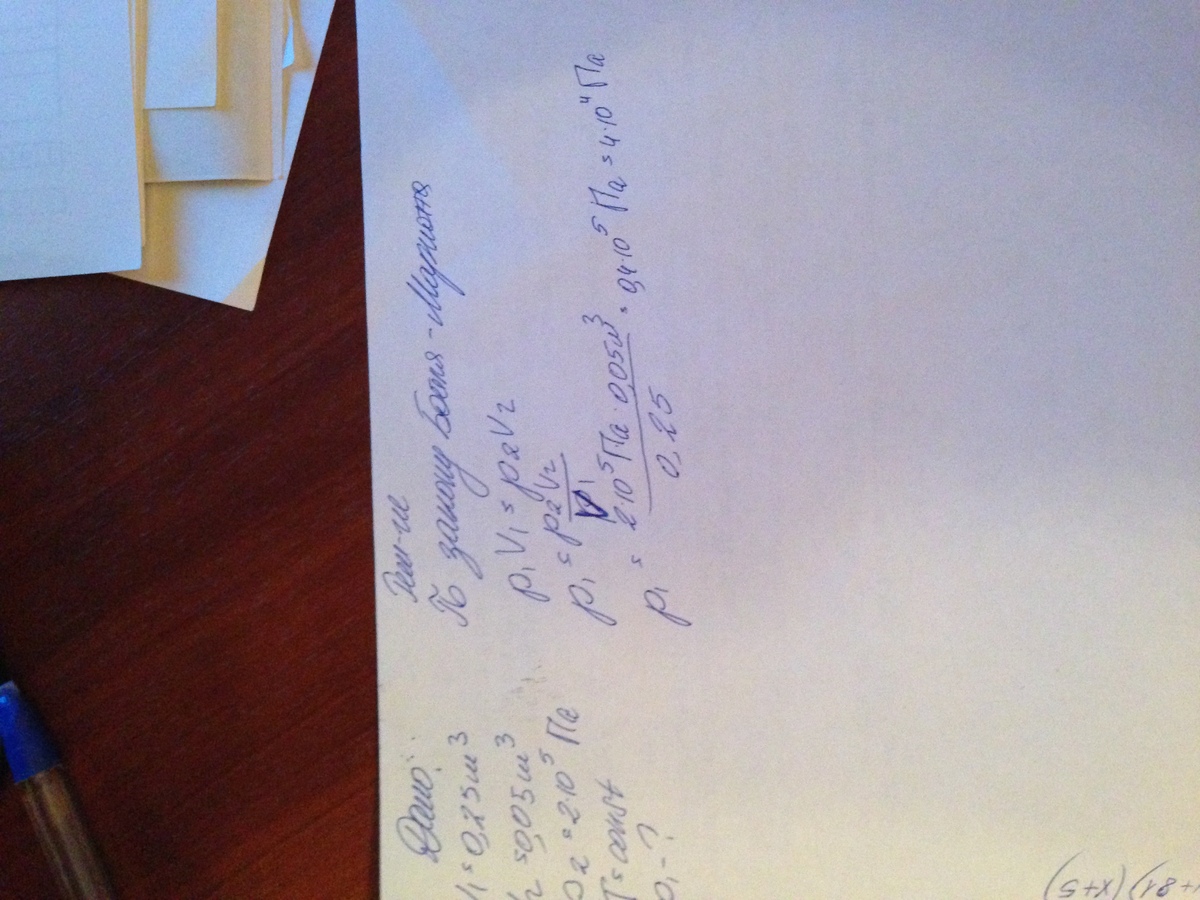 Дано:
V₁ = 0,25 м³
V₂ = 0,05 м³
p₂ = 2·10⁵ Па
T = const
p₁ - ?
Реш-ие
По закону Бойля - Мариотта
p₁V₁ = p₂V₂
p₁ = p₂V₂ / V₁
p₁ = 2·10⁵ Па · 0,05 м³ / 0,25 = 0,4·10⁵ Па = 4·10⁴ Па
+81)(x+5)